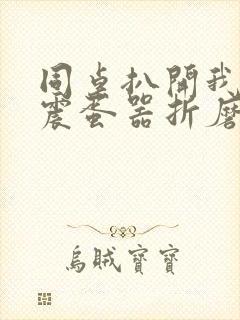 同桌扒開我
震蛋器折磨
烏賊寶寶